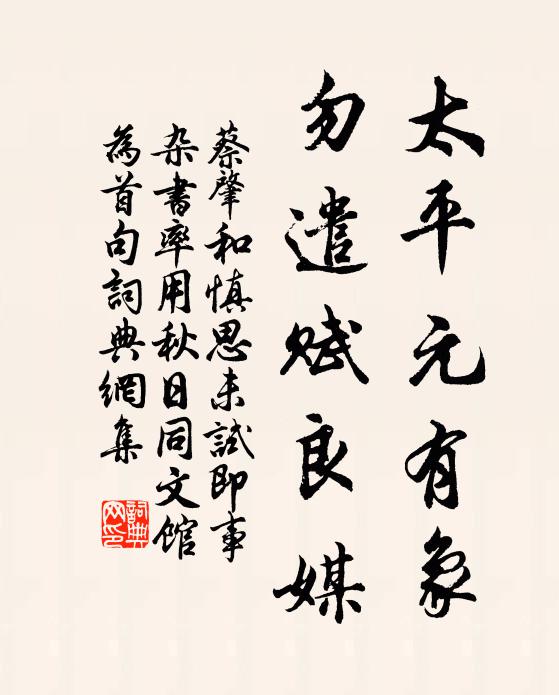 太平元有象
勿遣赋良媒
蔡肇和慎思未試即事
杂書率用秋日同文馆
為首句詞典網集
詞典网印